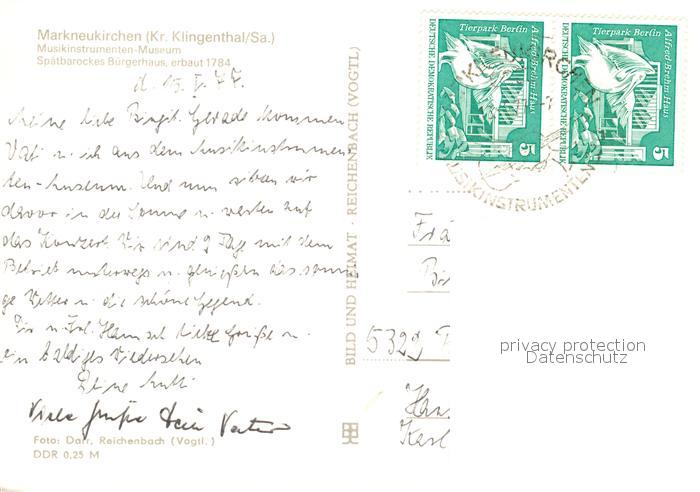 Markneukirchen (Kr. Klingenthal/Sa.)
Musikinstrumenten-Museum
Spätbarockes Bürgerhaus, erbaut 1784
d. 15.5.77.
Meine liebe Birgit. Gerade kommen
Vati u. ich aus dem Musikinstrumen-
ten-Museum. Und nun sitzen wir
davor in der Sonne u. warten auf
das Konzert. Wir sind 2 Tage mit dem
Betrieb unterwegs u. genießen das sonni-
ge Wetter u. die schöne Gegend.
Dir u. Frl. liebe Grüße u.
ein baldiges Wiedersehen
Deine Mutti
Viele Grüße Dein Vater
Foto: Darr, Reichenbach (Vogtl.)
DDR 0,25 M
BILD UND HEIMAT · REICHENBACH (VOGTL)
Tierpark Berlin
Alfred Brehm Haus
DEUTSCHE DEMOKRATISCHE REPUBLIK
5
Tierpark Berlin
Alfred Brehm Haus
DEUTSCHE DEMOKRATISCHE REPUBLIK
5
MUSIKINSTRUMENTEN
Frä
Bi
5329
Karl
privacy protection
Datenschutz